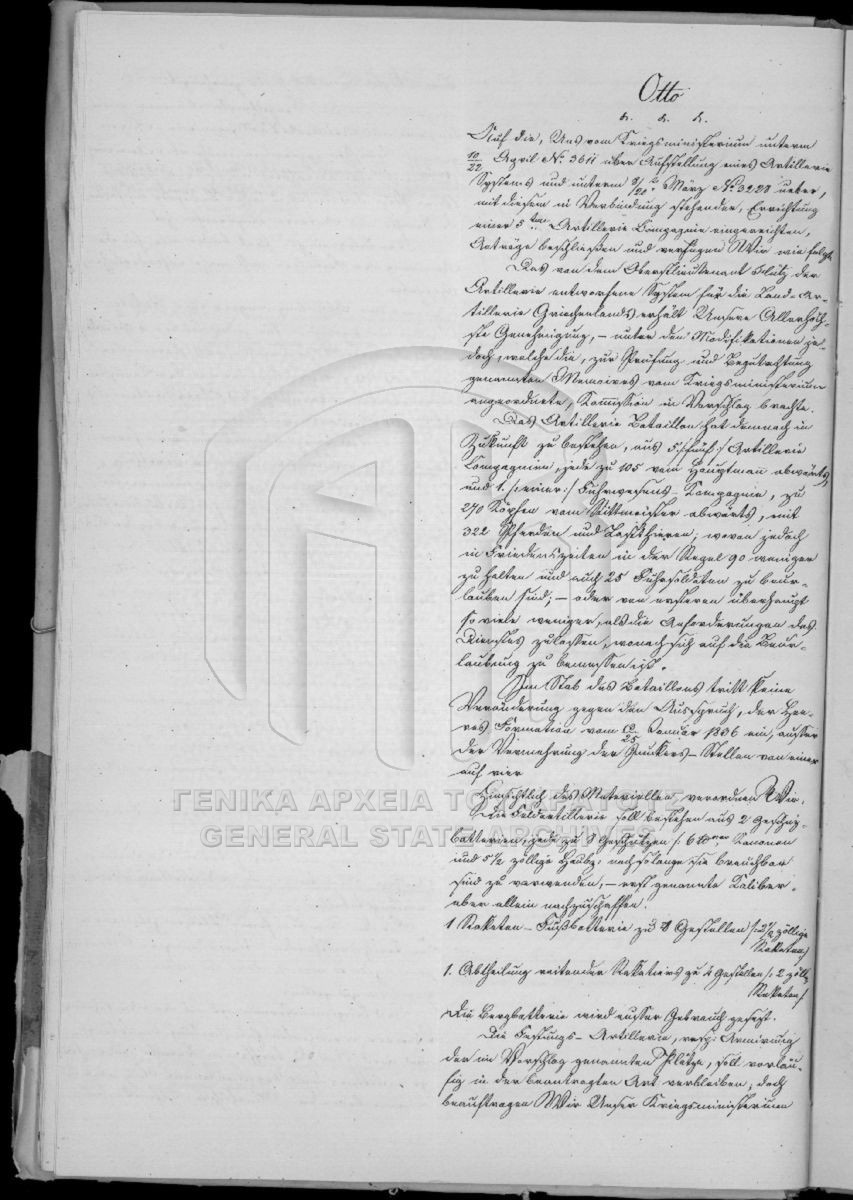 Otto
v. v. v.
Auf die, Uns vom Kriegsministerium unterm
10/22 April No. 3611 über Aufstellung eines Artillerie
Systems und unterm 8/20 März No 3228 ueber,
mit diesem in Verbindung stehender, Errichtung
einer 5ten Artillerie Compagnie eingereichten,
Anträge beschließen und verfügen Wir wie folgt
Das von dem Oberstlieutenant der
Artillerie entworfene System für die Land-Ar-
tillerie Griechenlands erhält Unsere Allerhöch-
ste Genehmigung, – unter den Modifikationen je-
doch, welche die, zur Prüfung und Begutachtung
genannten Memoires vom Kriegsministerium
angeordnete, Kommission in Vorschlag brachte.
Das Artillerie Bataillon hat demnach in
Zukunft zu bestehen, aus 5 /:fünf:/ Artillerie
Compagnien, jede zu 105 vom Hauptmann abwärts,
und 1. /:einer:/ Fuhrwesens-Kompagnie, zu
270 Köpfen vom Rittmeister abwärts, mit
322 Pferden und Lastthieren; wovon jedoch
in Friedenszeiten in der Regel 90 weniger
zu halten und auch 25 Fuhrsoldaten zu beur-
lauben sind; – oder von ersteren überhaupt
so viele weniger, als die Anforderungen des
Dienstes zulassen, wonach sich auf die Beur-
laubung zu bemessen ist.
Im Stab des Bataillons tritt keine
Veränderung gegen den Ausspruch, der Hee-
res Formation vom 13/25 Januar 1836 ein, ausser
der Vermehrung der Junkers-Stellen von einer
auf vier
Hinsichtlich des Materiellen, verordnen Wir.
Die Feldartillerie soll bestehen aus 2
batterien, jede zu 8 Geschützen /: 6 Kanonen
und 5 1/2 zöllige Haubz: noch solange sie brauchbar
sind zu verwenden, – erst genannte Kaliber
aber allein nachzuschaffen.
1 Raketen-Fußbatterie zu 8 Gestellen /:2 1/2 zöllige
Raketen/
1. Abtheilung reitender Raketiers zu 4 Gestellen /: 2 zöll
Raketen/
Die Bergbatterie wird ausser Gebrauch gesetzt.
Die Festungs-Artillerie, resp: Armirung
der in Vorschlag genannten Plätze, soll vorläu-
fig in der beantragten Art verbleiben; doch
beauftragen Wir Unser Kriegsministerium
ΓΕΝΙΚΑ ΑΡΧΕΙΑ ΤΟΥ ΚΡΑΤΟΥΣ
GENERAL STATE ARCHIVES